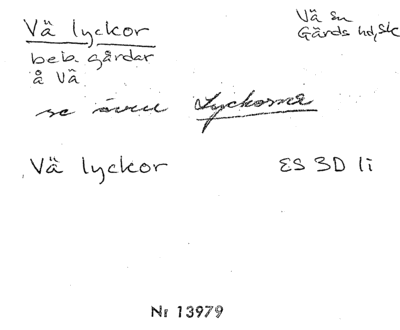 Vä lyckor
Vä sn
Gärds hd, Sk
beb. gårdar
å Vä
se även Lyckorna
Vä lyckor ES 3D 1i
Nr 13979